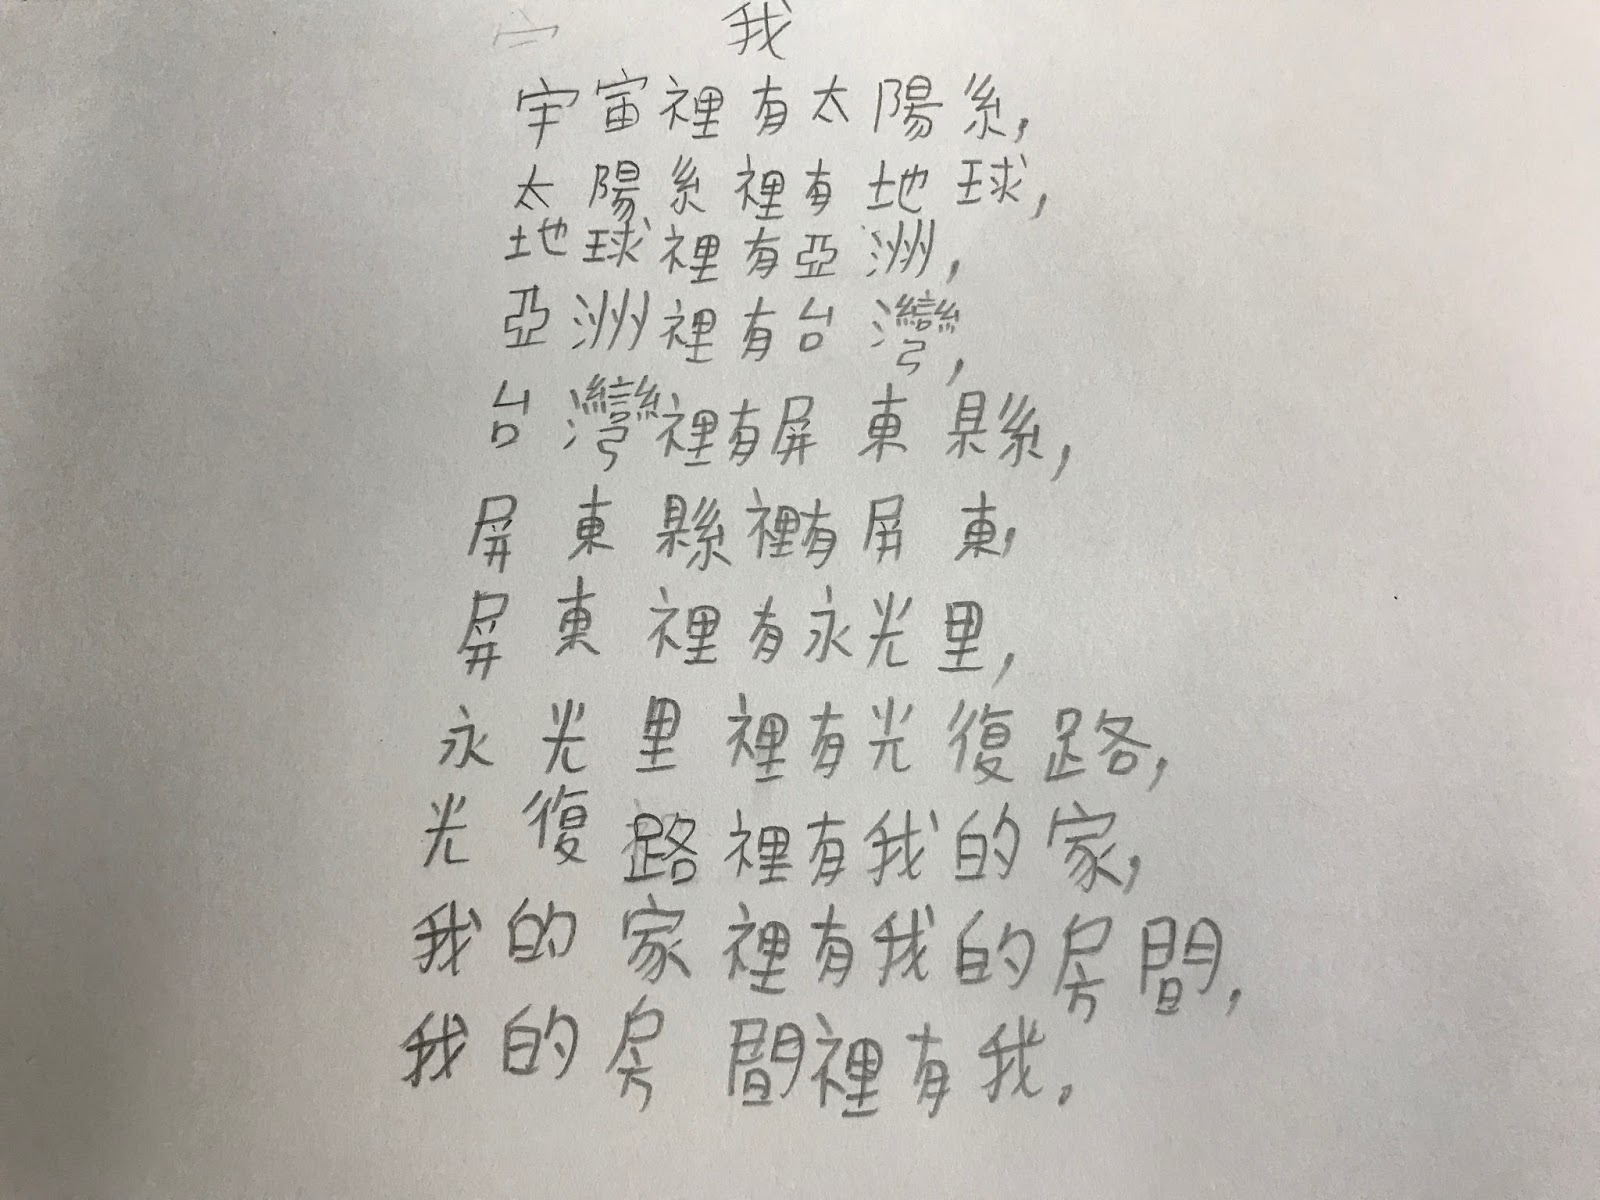 我
宇宙裡有太陽系,
太陽系裡有地球,
地球裡有亞洲,
亞洲裡有台灣,
台灣裡有屏東縣,
屏東縣裡有屏東,
屏東裡有永光里,
永光里裡有光復路,
光復路裡有我的家,
我的家裡有我的房間,
我的房間裡有我.